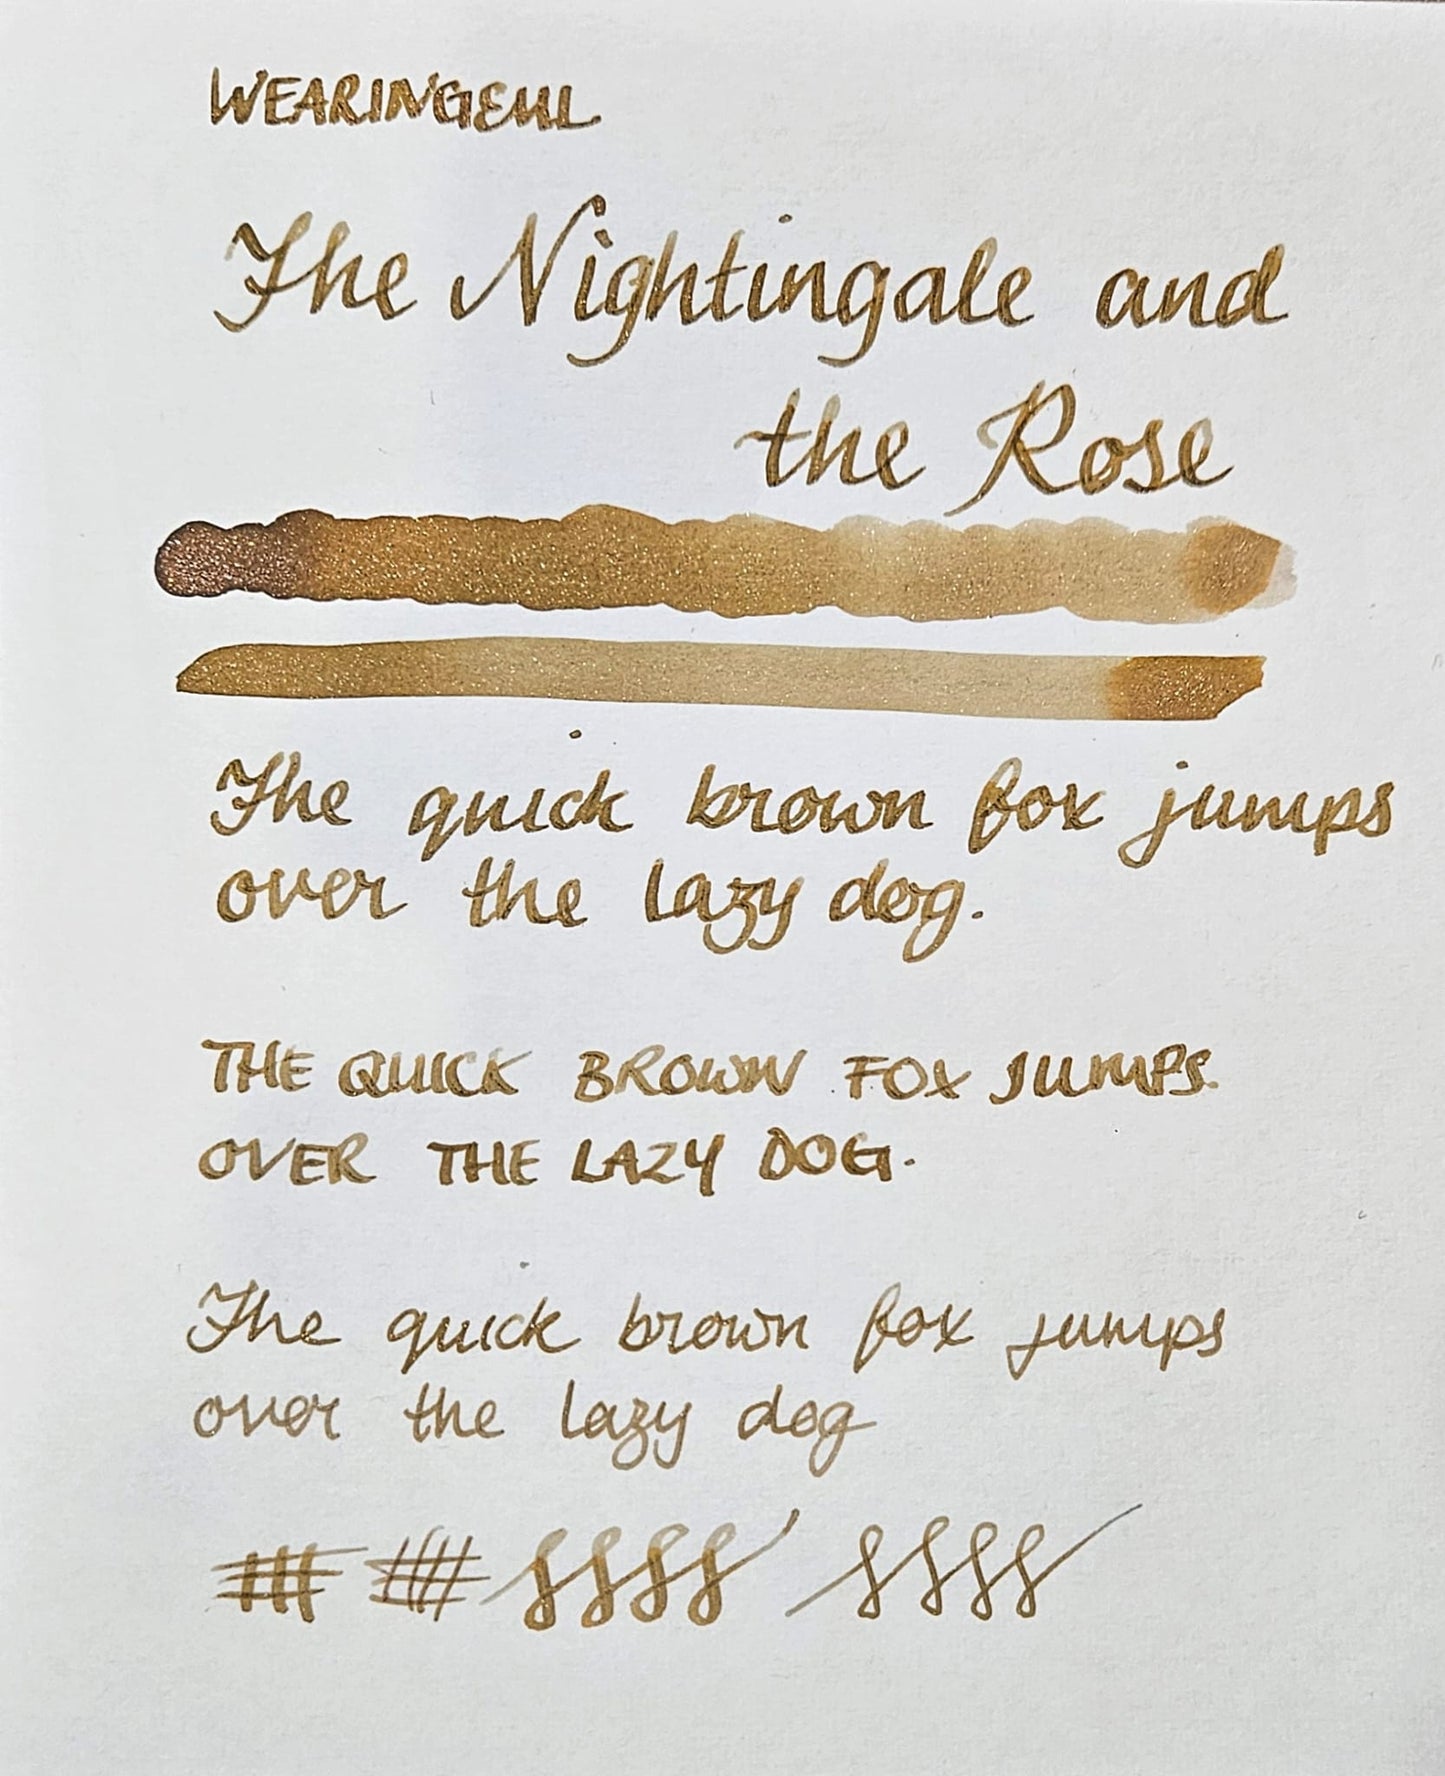 WEARINGEUL
The Nightingale and
the Rose
The quick brown fox jumps
over the lazy dog.
THE QUICK BROWN FOX JUMPS
OVER THE LAZY DOG.
The quick brown fox jumps
over the lazy dog